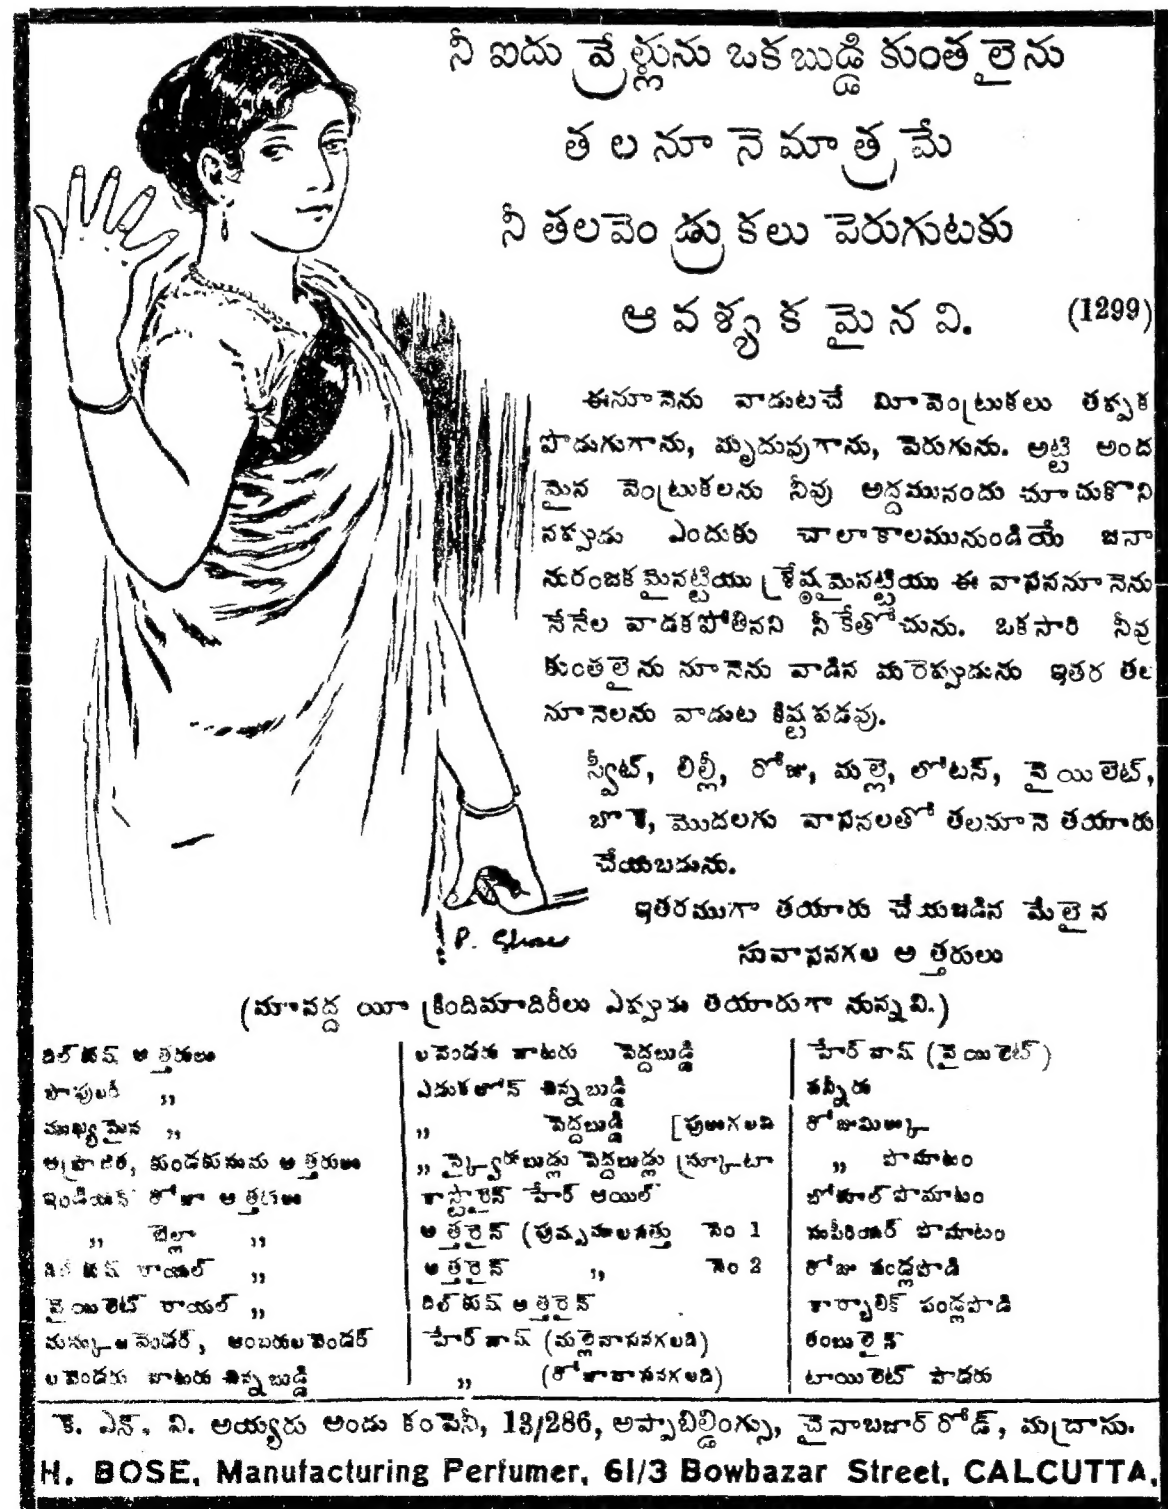 నీ ఐదు వ్రేళ్లును ఒకబుడ్డి కుంతలైను
తలనూనెమాత్రమే
నీ తలవెండ్రుకలు పెరుగుటకు
ఆవశ్యకమైనవి. (1299)
ఈనూనెను వాడుటచే మీవెంట్రుకలు తప్పక
పొడుగుగాను, మృదువుగాను, పెరుగును. అట్టి అంద
మైన వెంట్రుకలను నీవు అద్దమునందు చూచుకొని
నప్పుడు ఎందుకు చాలాకాలమునుండియే జనా
నురంజకమైనట్టియు శ్రేష్ఠమైనట్టియు ఈ వాసననూనెను
నేనేల వాడకపోతినని నీకేతోచును. ఒకసారి నీవు
కుంతలైను నూనెను వాడిన మరెప్పుడును ఇతర తల
నూనెలను వాడుట కిష్టపడవు.
స్వీట్, లిల్లీ, రోజు, మల్లె, లోటస్, వైయిలెట్,
బొకె, మొదలగు వాసనలతో తలనూనె తయారు
చేయబడును.
ఇతరముగా తయారు చేయబడిన మేలైన
సువాసనగల అత్తరులు
(మావద్ద యీ క్రిందిమాదిరీలు ఎప్పుడు తయారుగా నున్నవి.)
దిల్ కుష్ అత్తరులు
పాపులర్ ,,
ముఖ్యమైన ,,
అపరాజిత, కుండకుసుమ అత్తరులు
ఇండియన్ రోజా అత్తరులు
,, బెల్లా ,,
దిల్ కుష్ రాయల్ ,,
వైయిలెట్ రాయల్ ,,
మస్కు లవెండర్, అంబరులవెండర్
లవెండరు వాటరు చిన్నబుడ్డి
లవెండరు వాటరు పెద్దబుడ్డి
ఎడుకలోన్ చిన్నబుడ్డి
,, పెద్దబుడ్డి [పులుగలది
,, స్క్వేరుబుడ్లు పెద్దబుడ్లు (స్క్రూటా
కాస్టారైన్ హేర్ ఆయిల్
అత్తరైన్ (పుష్పములసత్తు నెం 1
అత్తరైన్ ,, నెం 2
దిల్ కుష్ అత్తరైన్
హేర్ వాష్ (మల్లెవాసనగలది)
,, (రోజావాసనగలది)
హేర్ వాష్ (వైయిలెట్)
పన్నీరు
రోజుమిల్కు
,, పొమాటం
బోకూల్ పొమాటం
సుపీరియర్ పొమాటం
రోజు పండ్లపొడి
కార్బాలిక్ పండ్లపొడి
తంబులైన్
టాయిలెట్ పౌడరు
కె. ఎన్. వి. అయ్యరు అండు కంపెనీ, 13/286, అప్పాబిల్డింగ్సు, చైనాబజార్ రోడ్, మద్రాసు.
H. BOSE, Manufacturing Perfumer, 61/3 Bowbazar Street, CALCUTTA.